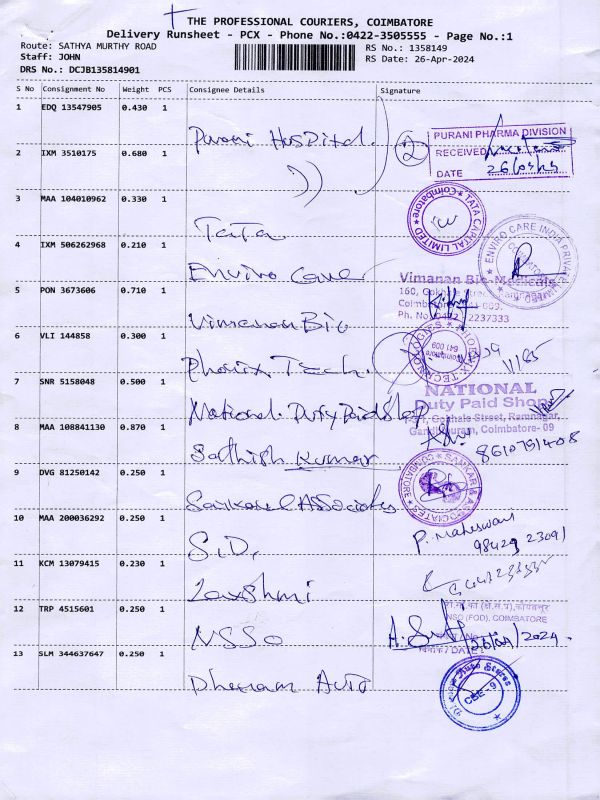 THE PROFESSIONAL COURIERS, COIMBATORE
Delivery Runsheet - PCX - Phone No.:0422-3505555 - Page No.:1
Route: SATHYA MURTHY ROAD
Staff: JOHN
DRS No.: DCJB135814901
RS No.: 1358149
RS Date: 26-Apr-2024
S No Consignment No Weight PCS Consignee Details Signature
1 EDQ 13547905 0.430 1
Purani Hospital.
PURANI PHARMA DIVISION
RECEIVED
DATE
2 IXM 3510175 0.680 1
))
3 MAA 104010962 0.330 1
Tata
TATA CAPITAL LIMITED
Coimbatore
4 IXM 506262968 0.210 1
Enviro Care
ENVIRO CARE INDIA PRIVATE LIMITED
5 PON 3673606 0.710 1
Vimanan Bio
Vimanan Bio
Ph. No. 0422 - 2237333
6 VLI 144858 0.300 1
Phoenix Tech.
641 009
7 SNR 5158048 0.500 1
National. Duty Paid Shop
NATIONAL
Duty Paid Shop
Gokhale Street, Ramnagar,
Coimbatore- 09
8 MAA 108841130 0.870 1
Sathish Kumar
8610791408
9 DVG 81250142 0.250 1
Sankare Associates
SANKAR & ASSOCIATES
COIMBATORE
10 MAA 200036292 0.250 1
S.D.
P. Maheswari
98429 23091
11 KCM 13079415 0.230 1
Laxshmi
12 TRP 4515601 0.250 1
NSSO
NSO (FOD), COIMBATORE
DATE
13 SLM 344637647 0.250 1
Dhanam Auto
CBE-9